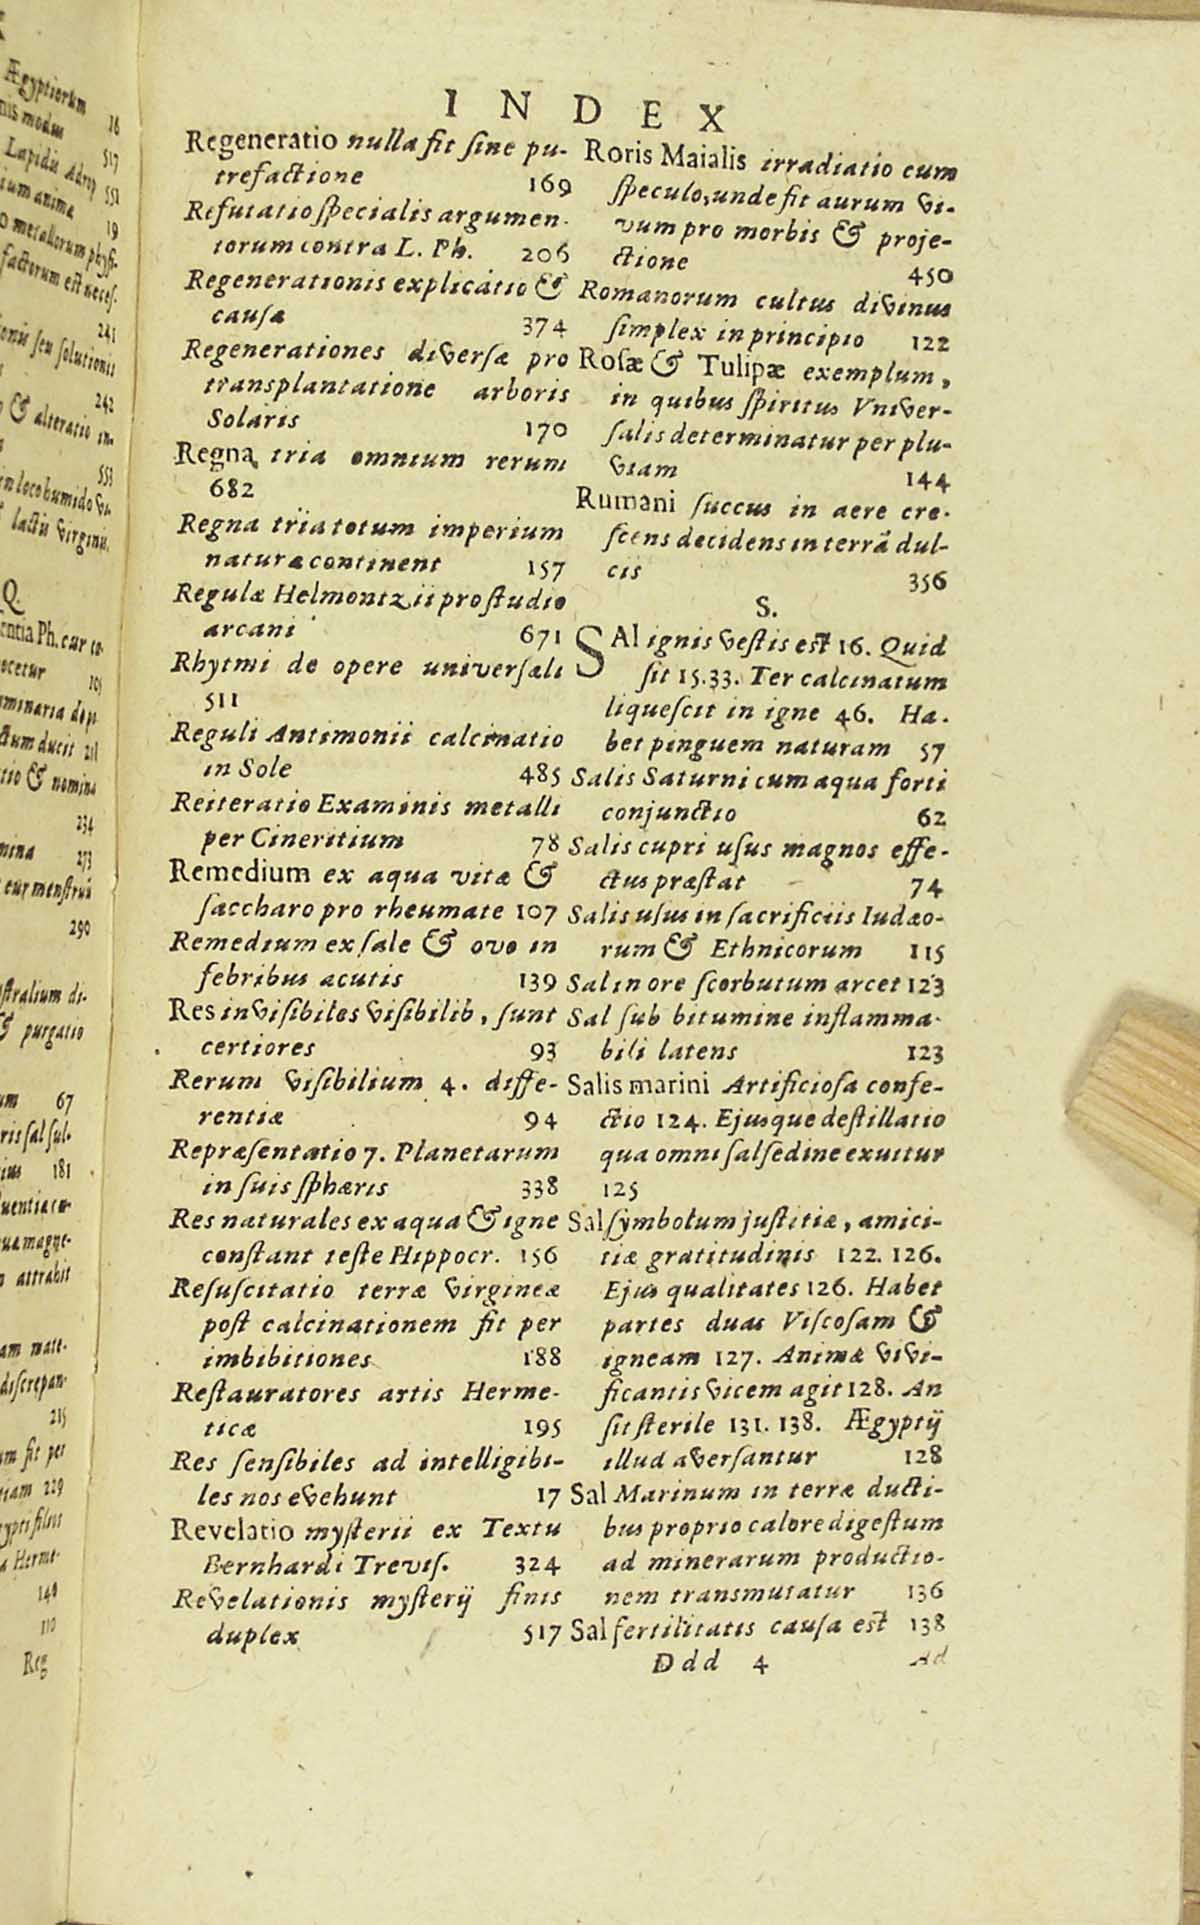 Ægyptiorum 16
nis modus 517
Lapidis Adrop 551
ium anima 19
o metallorum physi-
factorum est neces-
241
ionis seu solutionis
242
& alteratio in-
553
in loco humido vi-
lactis virginis.
Q.
entia Ph. cur co-
ocetur 105
uminaria dopt
ctum ducit 211
tio & nomina
234
mina 273
eur menstruũ
290
stralium di-
& purgatio
um 67
ris sal sul-
ius 181
luentia cœ-
qua magne-
attrahit
am mate-
discrepan-
215
um fit per
tiam 229
ypti filius
a Herme-
140
110
Reg
INDEX
Regeneratio nulla fit sine pu-
trefactione 169
Refutatio specialis argumen-
torum contra L. Ph. 206
Regenerationis explicatio &
causa 374
Regenerationes diversæ pro
transplantatione arboris
Solaris 170
Regna tria omnium rerum
682
Regna tria totum imperium
naturæ continent 157
Regulæ Helmontzii pro studio
arcani 671
Rhytmi de opere universali
511
Reguli Antimonii calcinatio
in Sole 485
Reiteratio Examinis metalli
per Cineritium 78
Remedium ex aqua vitæ &
saccharo pro rheumate 107
Remedium ex sale & ovo in
febribus acutis 139
Res invisibiles visibilib, sunt
certiores 93
Rerum visibilium 4. diffe-
rentiæ 94
Repræsentatio 7. Planetarum
in suis sphæris 338
Res naturales ex aqua & igne
constant teste Hippocr. 156
Resuscitatio terræ virgineæ
post calcinationem fit per
imbibitiones 188
Restauratores artis Herme-
ticæ 195
Res sensibiles ad intelligibi-
les nos evehunt 17
Revelatio mysterii ex Textu
Bernhardi Trevis. 324
Revelationis mysterij finis
duplex 517
Roris Maialis irradiatio cum
speculo, unde fit aurum vi-
vum pro morbis & proje-
ctione 450
Romanorum cultus divinus
simplex in principio 122
Rosæ & Tulipæ exemplum,
in quibus spiritus Vniver-
salis determinatur per plu-
viam 144
Rumani succus in aere cre-
scens decidens in terrã dul-
cis 356
S.
SAl ignis vestis est 16. Quid
sit 15. 33. Ter calcinatum
liquescit in igne 46. Ha-
bet pinguem naturam 57
Salis Saturni cum aqua forti
conjunctio 62
Salis cupri usus magnos effe-
ctus præstat 74
Salis usus in sacrificiis Iudæo-
rum & Ethnicorum 115
Sal in ore scorbutum arcet 123
Sal sub bitumine inflamma-
bili latens 123
Salis marini Artificiosa confe-
ctio 124. Ejusque destillatio
qua omni salsedine exuitur
125
Sal symbolum justitiæ, amici-
tiæ gratitudinis 122. 126.
Ejus qualitates 126. Habet
partes duas Viscosam &
igneam 127. Animæ vivi-
ficantis vicem agit 128. An
sit sterile 131. 138. Ægyptij
illud aversantur 128
Sal Marinum in terræ ducti-
bus proprio calore digestum
ad minerarum productio-
nem transmutatur 136
Sal fertilitatis causa est 138
Ddd 4 Ad